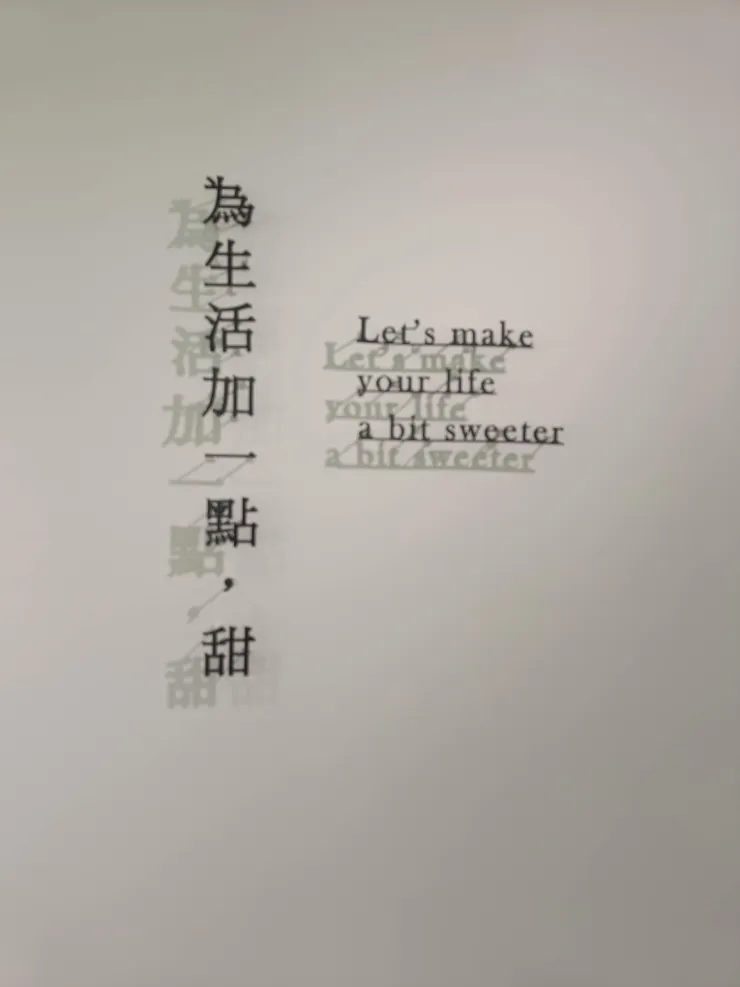 為生活加一點，甜
Let's make
your life
a bit sweeter